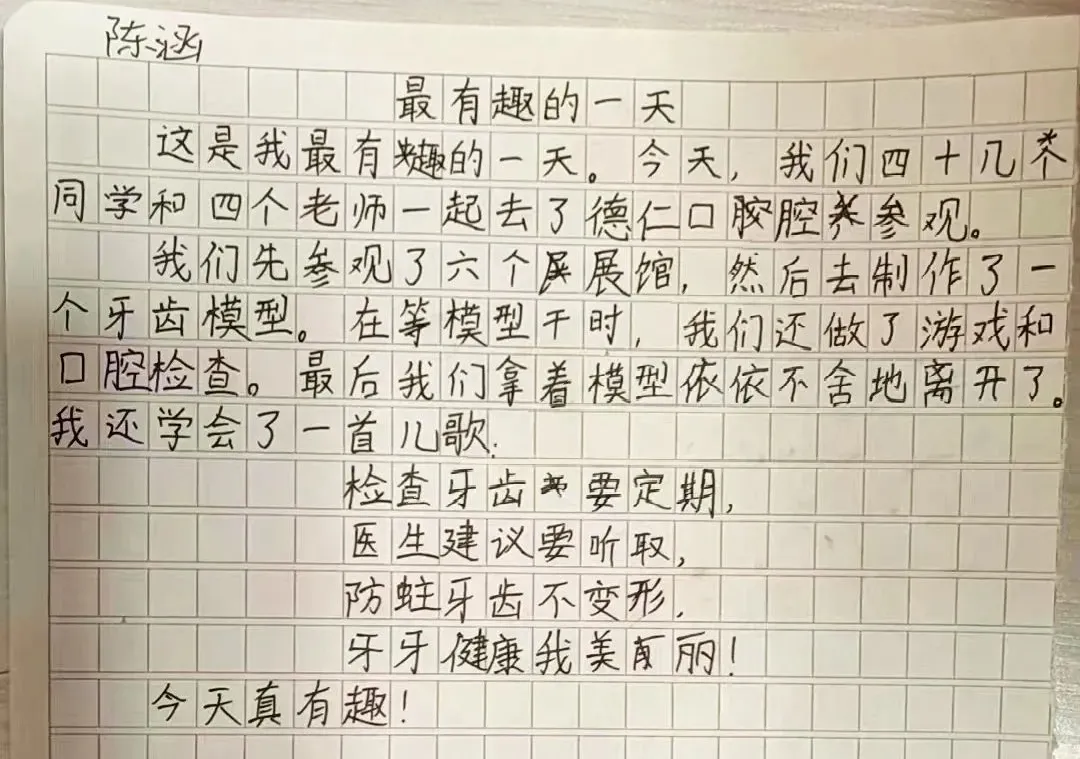 陈涵
最有趣的一天
这是我最有趣的一天。今天，我们四十几个
同学和四个老师一起去了德仁口腔参观。
我们先参观了六个展馆，然后去制作了一
个牙齿模型。在等模型干时，我们还做了游戏和
口腔检查。最后我们拿着模型依依不舍地离开了。
我还学会了一首儿歌：
检查牙齿要定期，
医生建议要听取，
防蛀牙齿不变形，
牙牙健康我美丽！
今天真有趣！